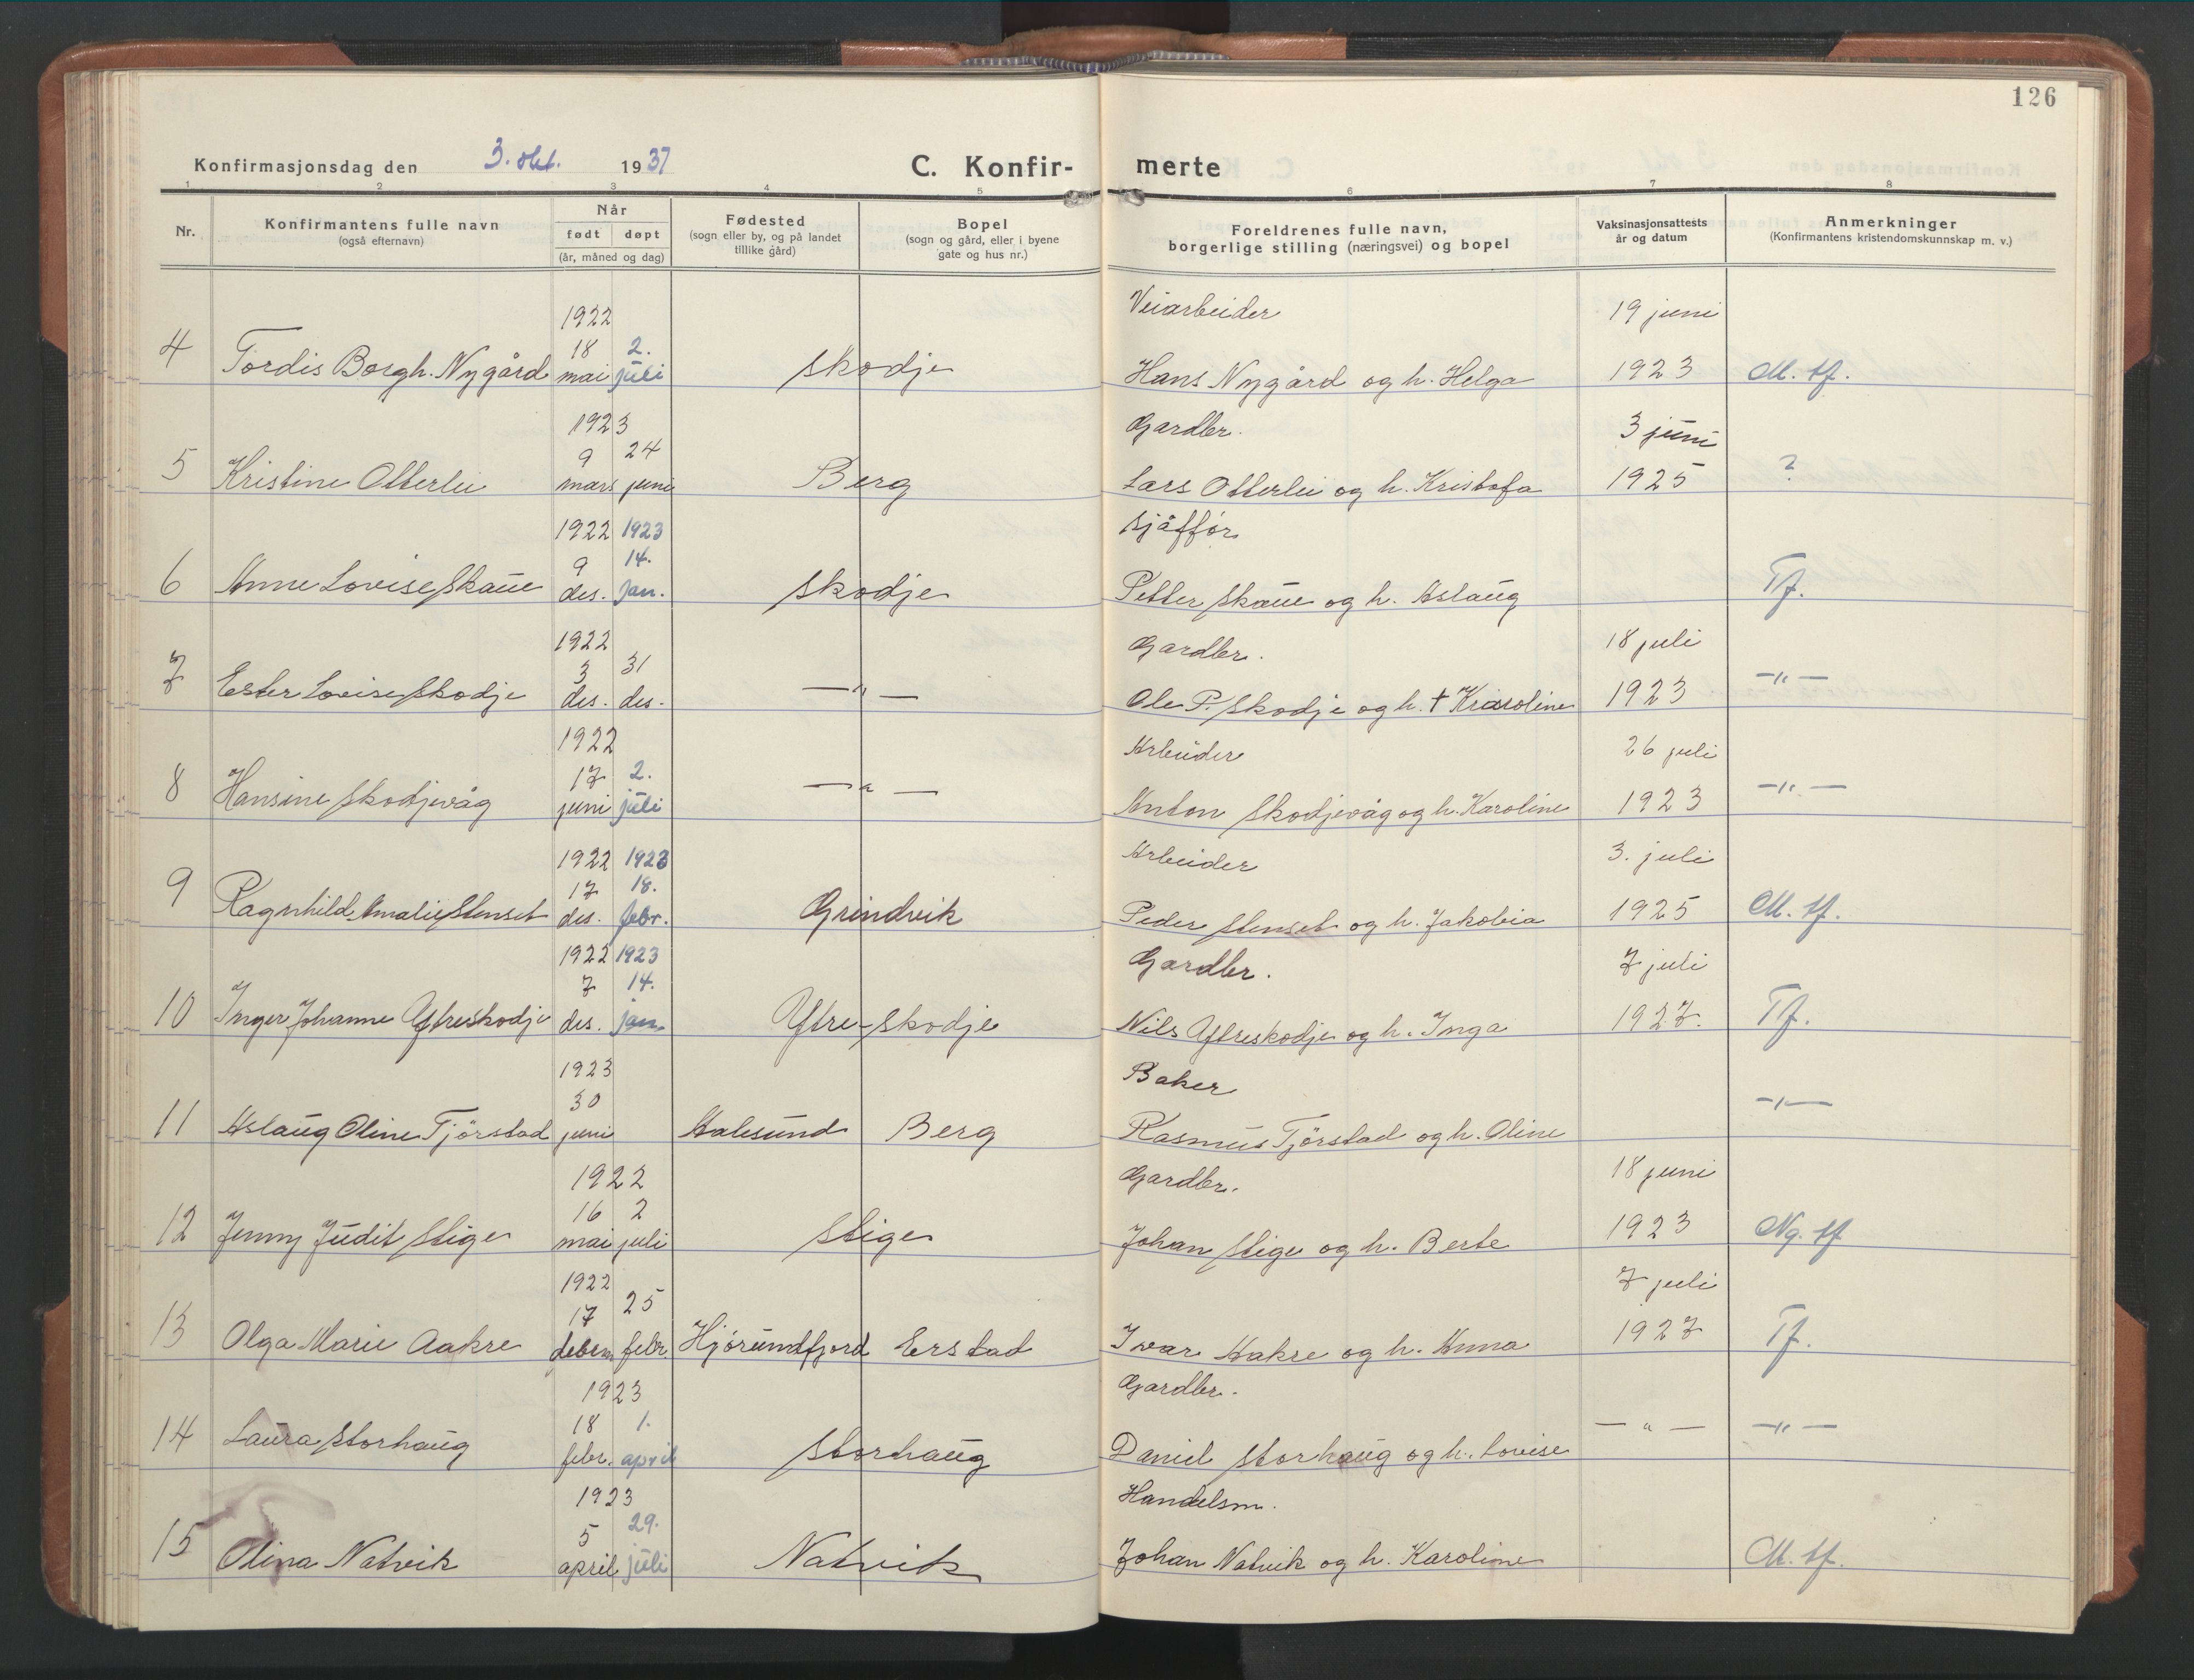 126
Konfirmasjonsdag den 3. okt. 1937
C. Konfir- merte
1 2 3 4 5 6 7 8
Nr.
Konfirmantens fulle navn
(også efternavn)
Når
født døpt
(år, måned og dag)
Fødested
(sogn eller by, og på landet
tillike gård)
Bopel
(sogn og gård, eller i byene
gate og hus nr.)
Foreldrenes fulle navn,
borgerlige stilling (næringsvei) og bopel
Vaksinasjonsattests
år og datum
Anmerkninger
(Konfirmantens kristendomskunnskap m. v.)
1922 Veiarbeider 19 juni
4 18 2.
Tordis Borgh. Nygård mai juli Skodje Hans Nygård og h. Helga 1923 M. tf.
1923 Gardbr. 3 juni
5 9 24 ?
Kristine Otterlei mars juni Berg Lars Otterlei og h. Kristofa 1925
1922 1923 Sjåffør
9 14.
6 Anne Lovise Skaue des. jan. Skodje Petter Skaue og h. Aslaug Tf.
1922 Gardbr. 18 juli
7 3 31
Ester Lovise Skodje des. des. — " — Ole P. Skodje og h. † Karoline 1923 — " —
1922 Arbeider 26 juli
8 17 2.
Hansine Skodjevåg juni juli — " — Anton Skodjevåg og h. Karoline 1923 — " —
1922 1923 Arbeider 3. juli
9 17 18.
Ragnhild Amalie Stenset des. febr. Grindvik Peder Stenset og h. Jakobia 1925 M. tf.
1922 1923 Gardbr. 7 juli
7 14.
10 Inger Johanne Ytreskodje des. jan. Ytre-Skodje Nils Ytreskodje og h. Inga 1927. Tf.
1923 Baker
30
11 Aslaug Oline Tjörstad juni Aalesund Berg Rasmus Tjörstad og h. Oline — " —
1922 Gardbr. 18 juni
16 2
12 Jenny Judit Stige mai juli Stige Johan Stige og h. Berte 1923 Ng. tf
1922 7 juli
17 25
13 Olga Marie Aakre febr. Hjørundfjord Erstad Ivar Aakre og h. Anna 1927 Tf.
1923 Gardbr.
18 1.
14 Laura Storhaug febr. april Storhaug Daniel Storhaug og h. Lovise — " — — " —
1923 Handelsm.
5 29.
15 Olina Natvik april juli Natvik Johan Natvik og h. Karoline M. tf.